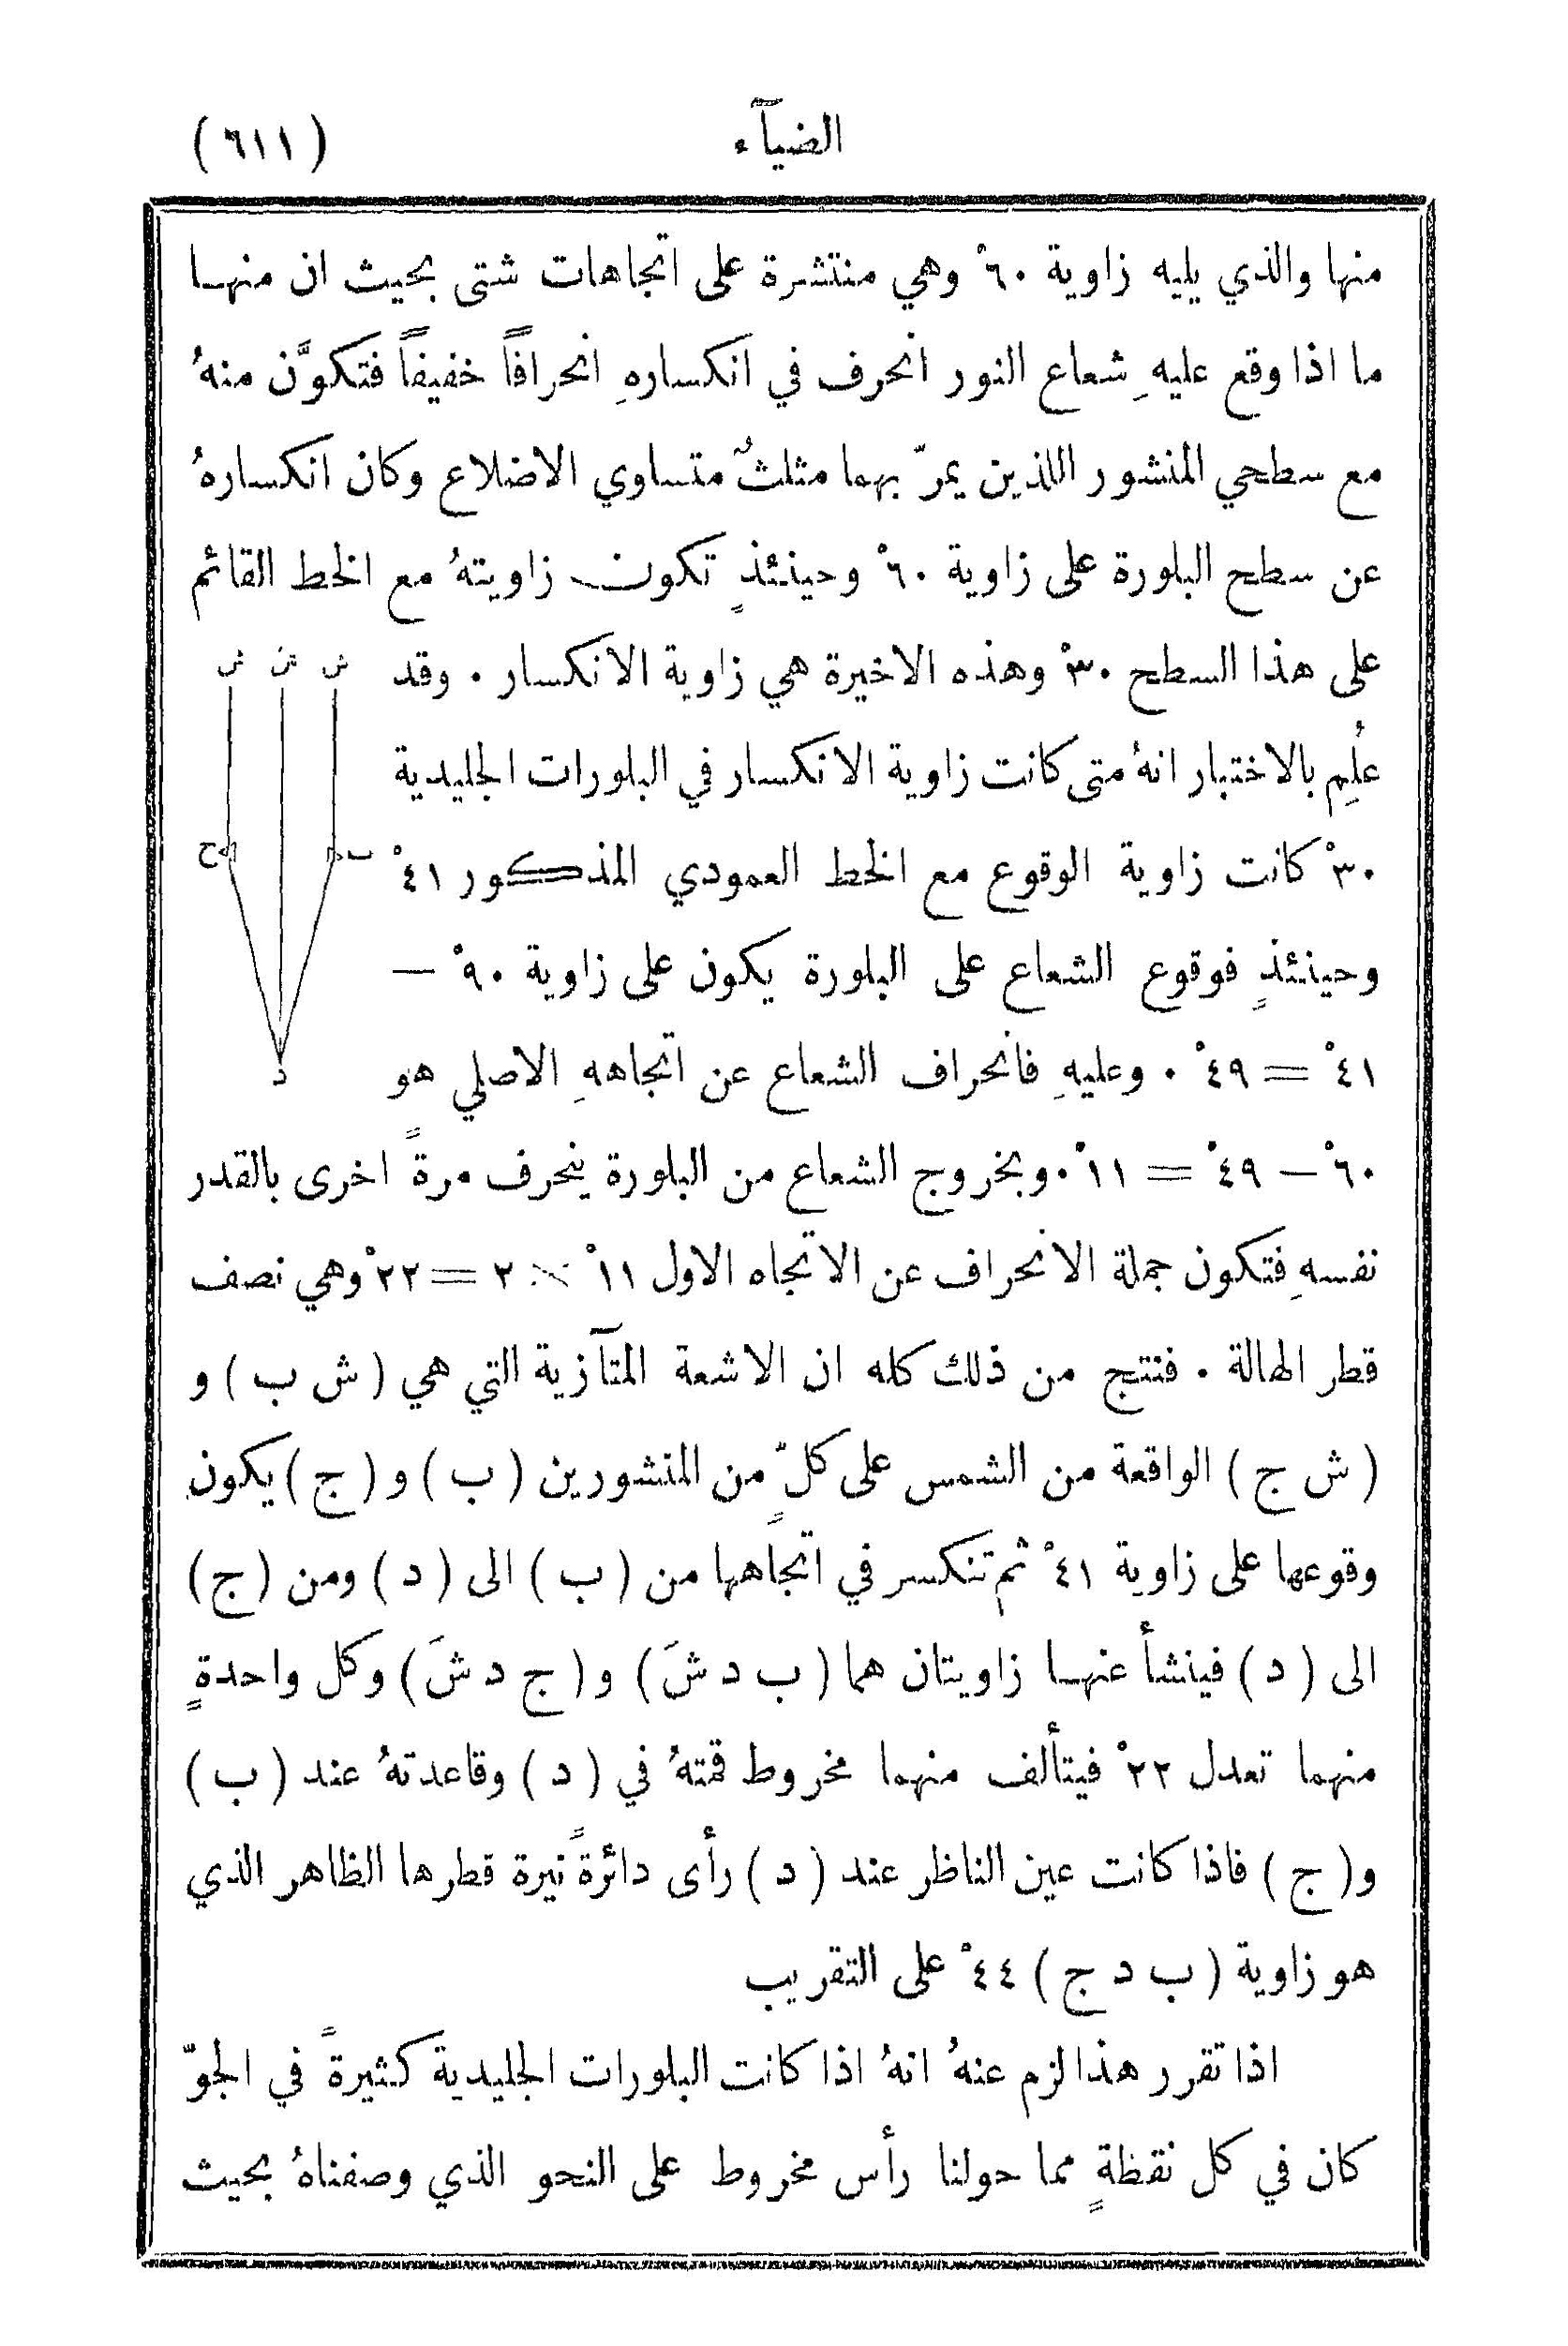 الضيآء
(٦١١)
منها والذي يليه زاوية ٦٠° وهي منتشرة على اتجاهات شتى بحيث ان منهـا
ما اذا وقع عليهِ شعاع النور انحرف في انكسارهِ انحرافاً خفيفاً فتكوَّن منهُ
مع سطحي المنشور اللذين يمرّ بهما مثلثٌ متساوي الاضلاع وكان انكسارهُ
عن سطح البلورة على زاوية ٦٠° وحينئذٍ تكون زاويتهُ مع الخط القائم
على هذا السطح ٣٠° وهذه الاخيرة هي زاوية الانكسار . وقد
عُلِم بالاختبار انهُ متى كانت زاوية الانكسار في البلورات الجليدية
٣٠° كانت زاوية الوقوع مع الخط العمودي المذكور ٤١°
وحينئذٍ فوقوع الشعاع على البلورة يكون على زاوية ٩٠° —
٤١° = ٤٩° . وعليهِ فانحراف الشعاع عن اتجاههِ الاصلي هو
ش شَ ش
ب ج
د
٦٠° — ٤٩° = ١١° . وبخروج الشعاع من البلورة ينحرف مرةً اخرى بالقدر
نفسهِ فتكون جملة الانحراف عن الاتجاه الاول ١١° × ٢ = ٢٢° وهي نصف
قطر الهالة . فنتج من ذلك كله ان الاشعة المتآزية التي هي ( ش ب ) و
( ش ج ) الواقعة من الشمس على كلٍّ من المنشورين ( ب ) و ( ج ) يكون
وقوعها على زاوية ٤١° ثم تنكسر في اتجاهها من ( ب ) الى ( د ) ومن ( ج )
الى ( د ) فينشأ عنهـا زاويتان هما ( ب د شَ ) و ( ج د شَ ) وكل واحدةٍ
منهما تعدل ٢٢° فيتألف منهما مخروط قمتهُ في ( د ) وقاعدتهُ عند ( ب )
و ( ج ) فاذا كانت عين الناظر عند ( د ) رأى دائرةً نيرة قطرها الظاهر الذي
هو زاوية ( ب د ج ) ٤٤° على التقريب
اذا تقرر هذا لزم عنهُ انهُ اذا كانت البلورات الجليدية كثيرةً في الجوّ
كان في كل نقظةٍ مما حولنا رأس مخروط على النحو الذي وصفناهُ بحيث